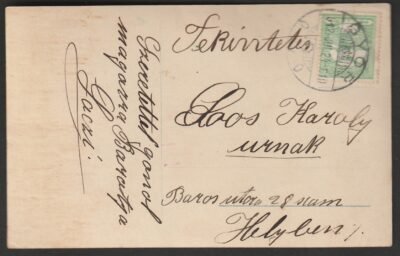 Szeretettel gondol
magára Barátja
Laczi!
Tekintetes
Loos Karoly
urnak
Baros utcza 28 szam
Helyben
GYŐR